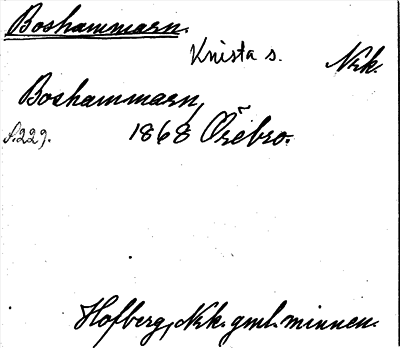 Boshammarn.
Knista s. Nrk.
Boshammarn,
s. 229. 1868 Örebro.
Hofberg, Nrk. gml. minnen.